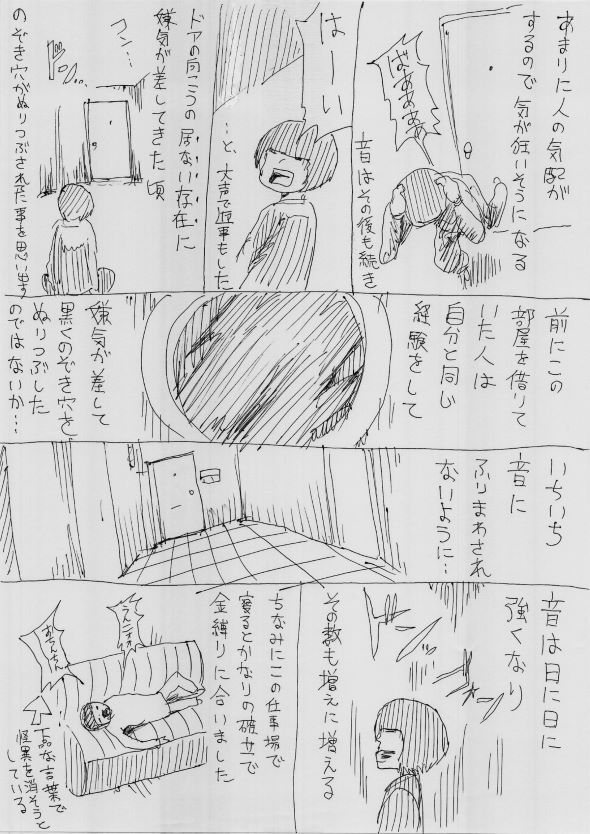 あまりに人の気配が
するので気が狂いそうになる
ばあああぁ
音はその後も続き
はーい
…と、大声で返事もした
ドアの向こうの居ない存在に
嫌気が差してきた頃
コン…
のぞき穴がぬりつぶされた事を思い出す
前にこの
部屋を借りて
いた人は
自分と同じ
経験をして
嫌気が差して
黒くのぞき穴を
ぬりつぶした
のではないか…
いちいち
音に
ふりまわされ
ないように…
音は日に日に
強くなり
その数も増えに増える
ちなみにこの仕事場で
寝るとかなりの確立で
金縛りに合いました
うんこォォ
おちんちん
下品な言葉で
怪異を消そうと
している